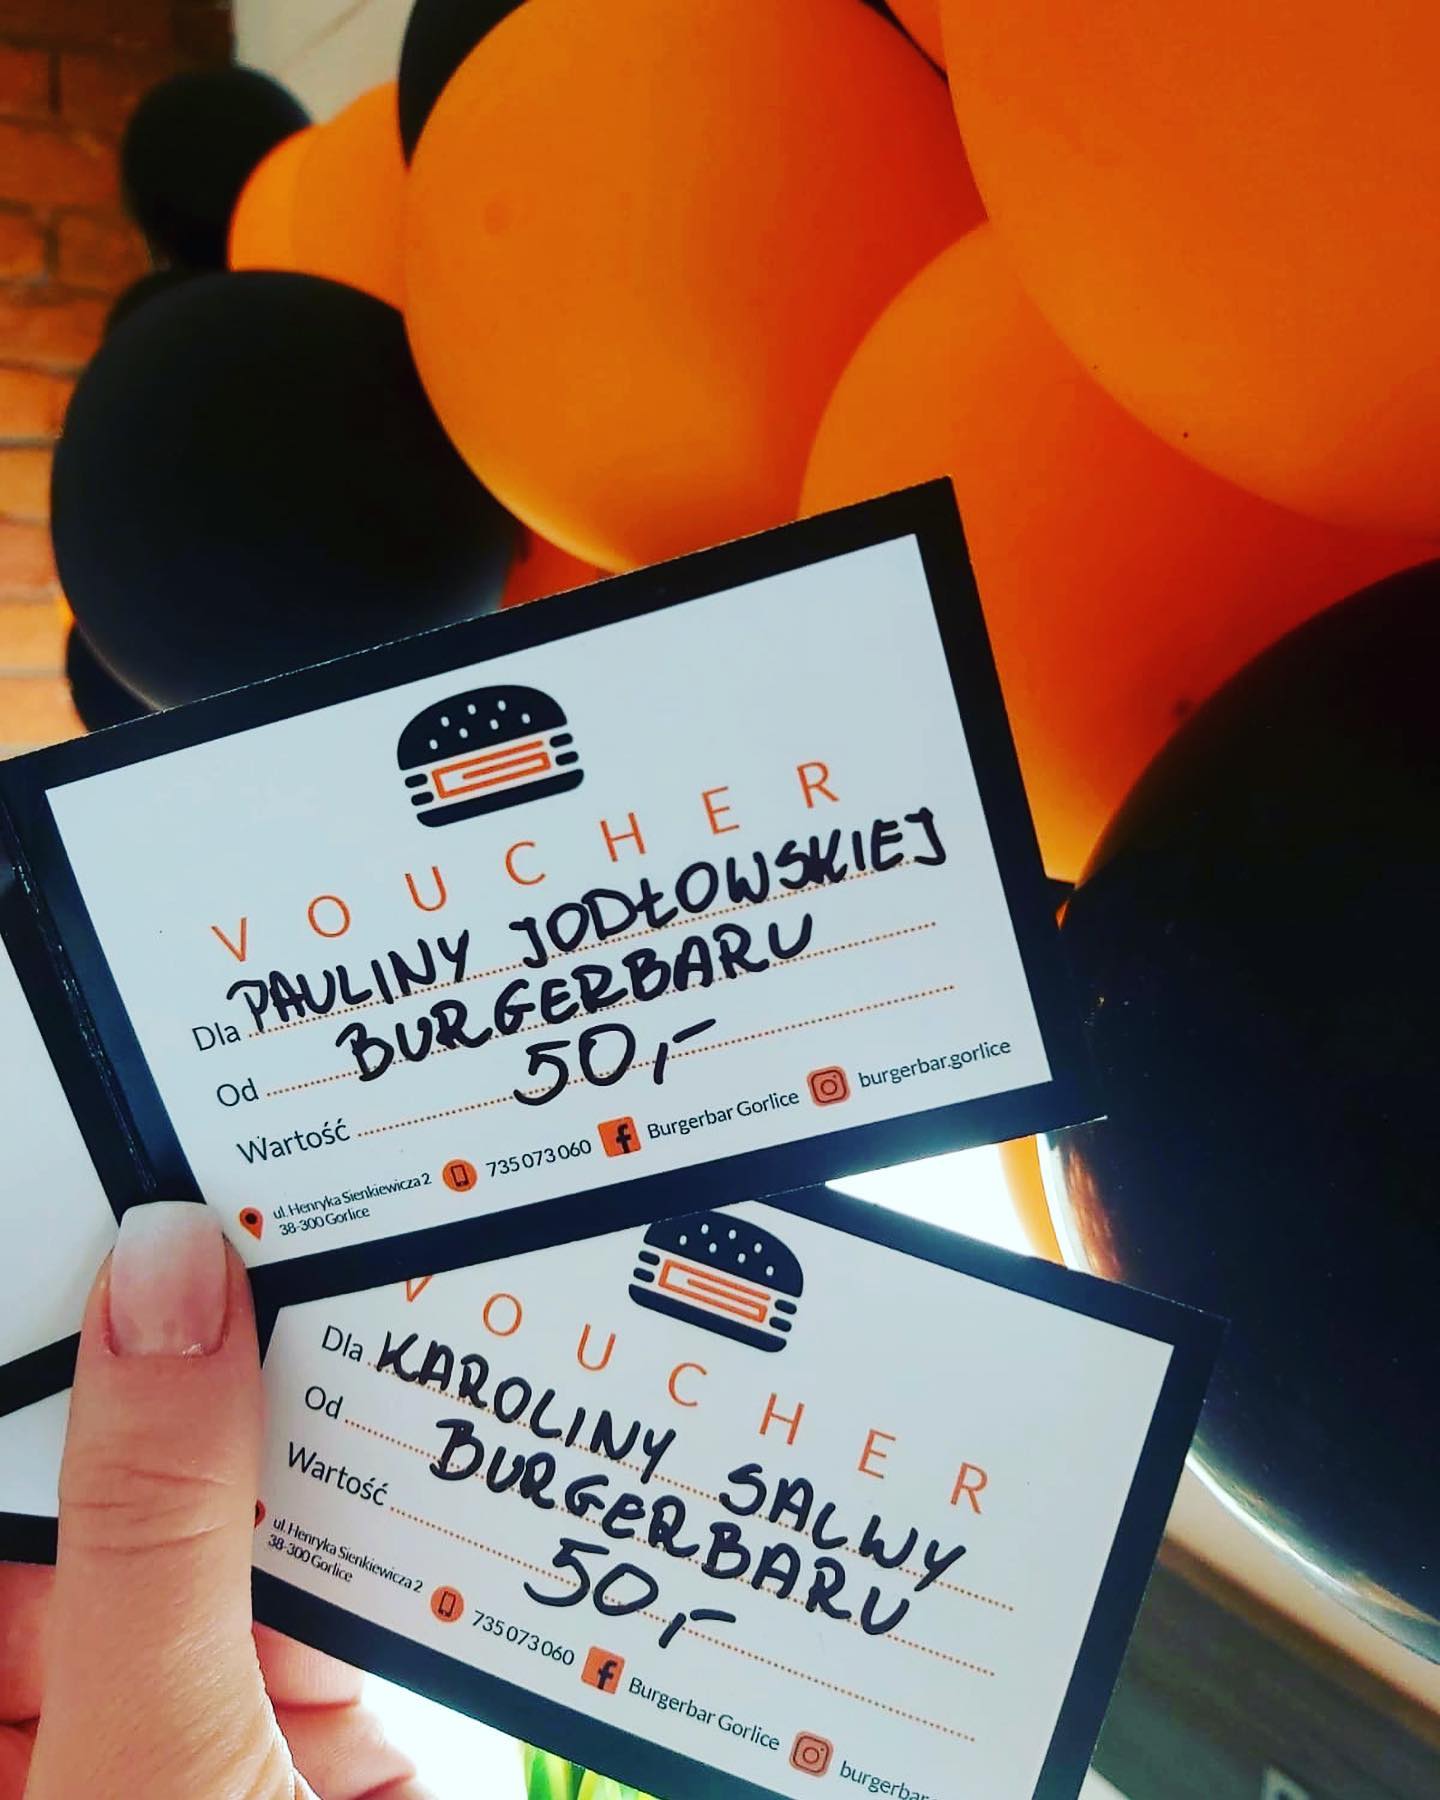 VOUCHER
Dla PAULINY JODŁOWSKIEJ
Od BURGERBARU
Wartość 50,-
ul. Henryka Sienkiewicza 2
38-300 Gorlice
735 073 060
Burgerbar Gorlice
burgerbar.gorlice
VOUCHER
Dla KAROLINY SALWY
Od BURGERBARU
Wartość 50,-
ul. Henryka Sienkiewicza 2
38-300 Gorlice
735 073 060
Burgerbar Gorlice
burgerbar.